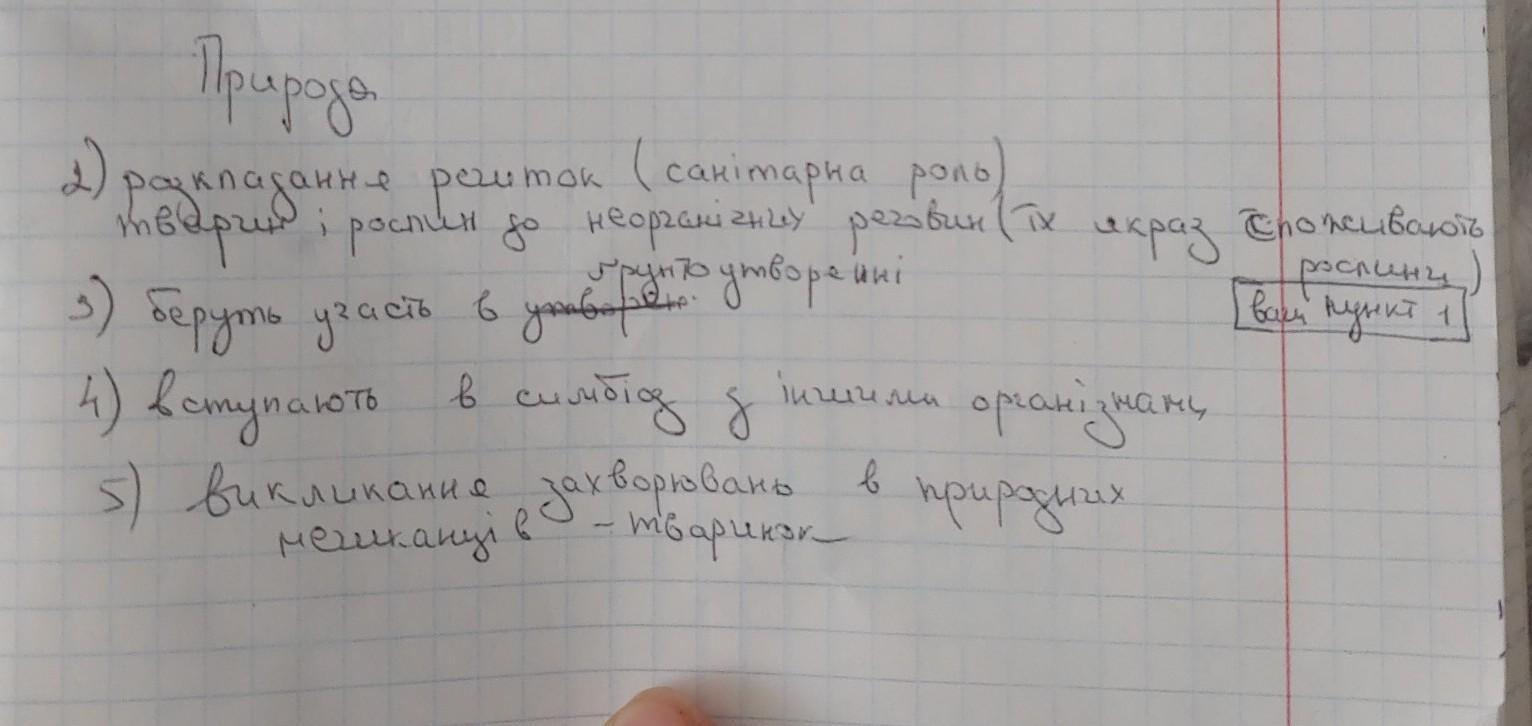 Природа
2) розкладання решток (санітарна роль)
тварин і рослин до неорганічних речовин (їх якраз споживають
рослини)
ґрунтоутворенні
3) беруть участь в утворен.
ваш пункт 1
4) вступають в симбіоз з іншими організмами
5) викликання захворювань в природних
мешканців – тваринок